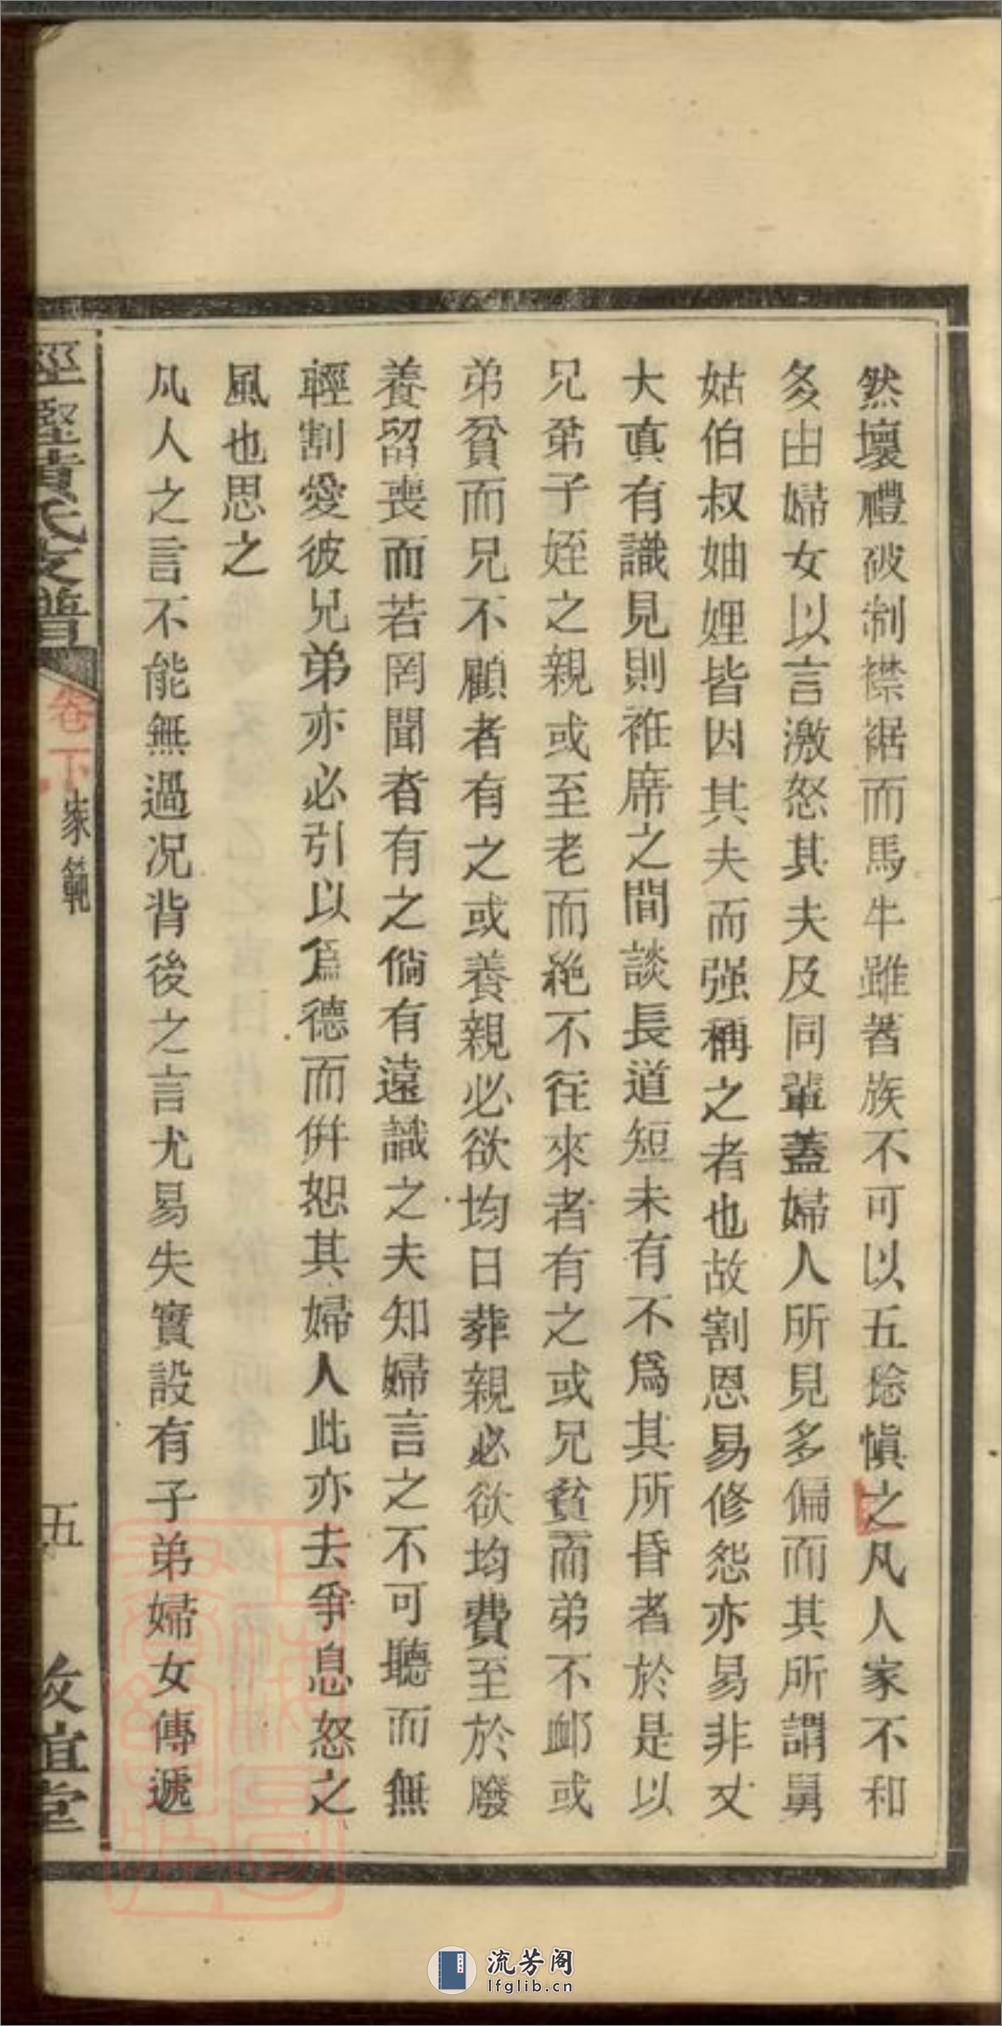 然壞禮破制襟裾而馬牛雖著族不可以五捻愼之凡人家不和
多由婦女以言激怒其夫及同輩蓋婦人所見多偏而其所謂舅
姑伯叔妯娌皆因其夫而强稱之者也故割恩易修怨亦易非丈
大眞有識見則袵席之間談長道短未有不爲其所昏者於是以
兄弟子姪之親或至老而絶不往來者有之或兄貧而弟不䘏或
弟貧而兄不顧者有之或養親必欲均日葬親必欲均費至於廢
養留喪而若罔聞者有之倘有遠識之夫知婦言之不可聽而無
輕割愛彼兄弟亦必引以爲德而倂恕其婦人此亦去爭息怒之
風也思之
凡人之言不能無過况背後之言尤易失實設有子弟婦女傳遞
黄氏支譜
卷下
家範
五
敦誼堂
流芳阁
lfglib.cn